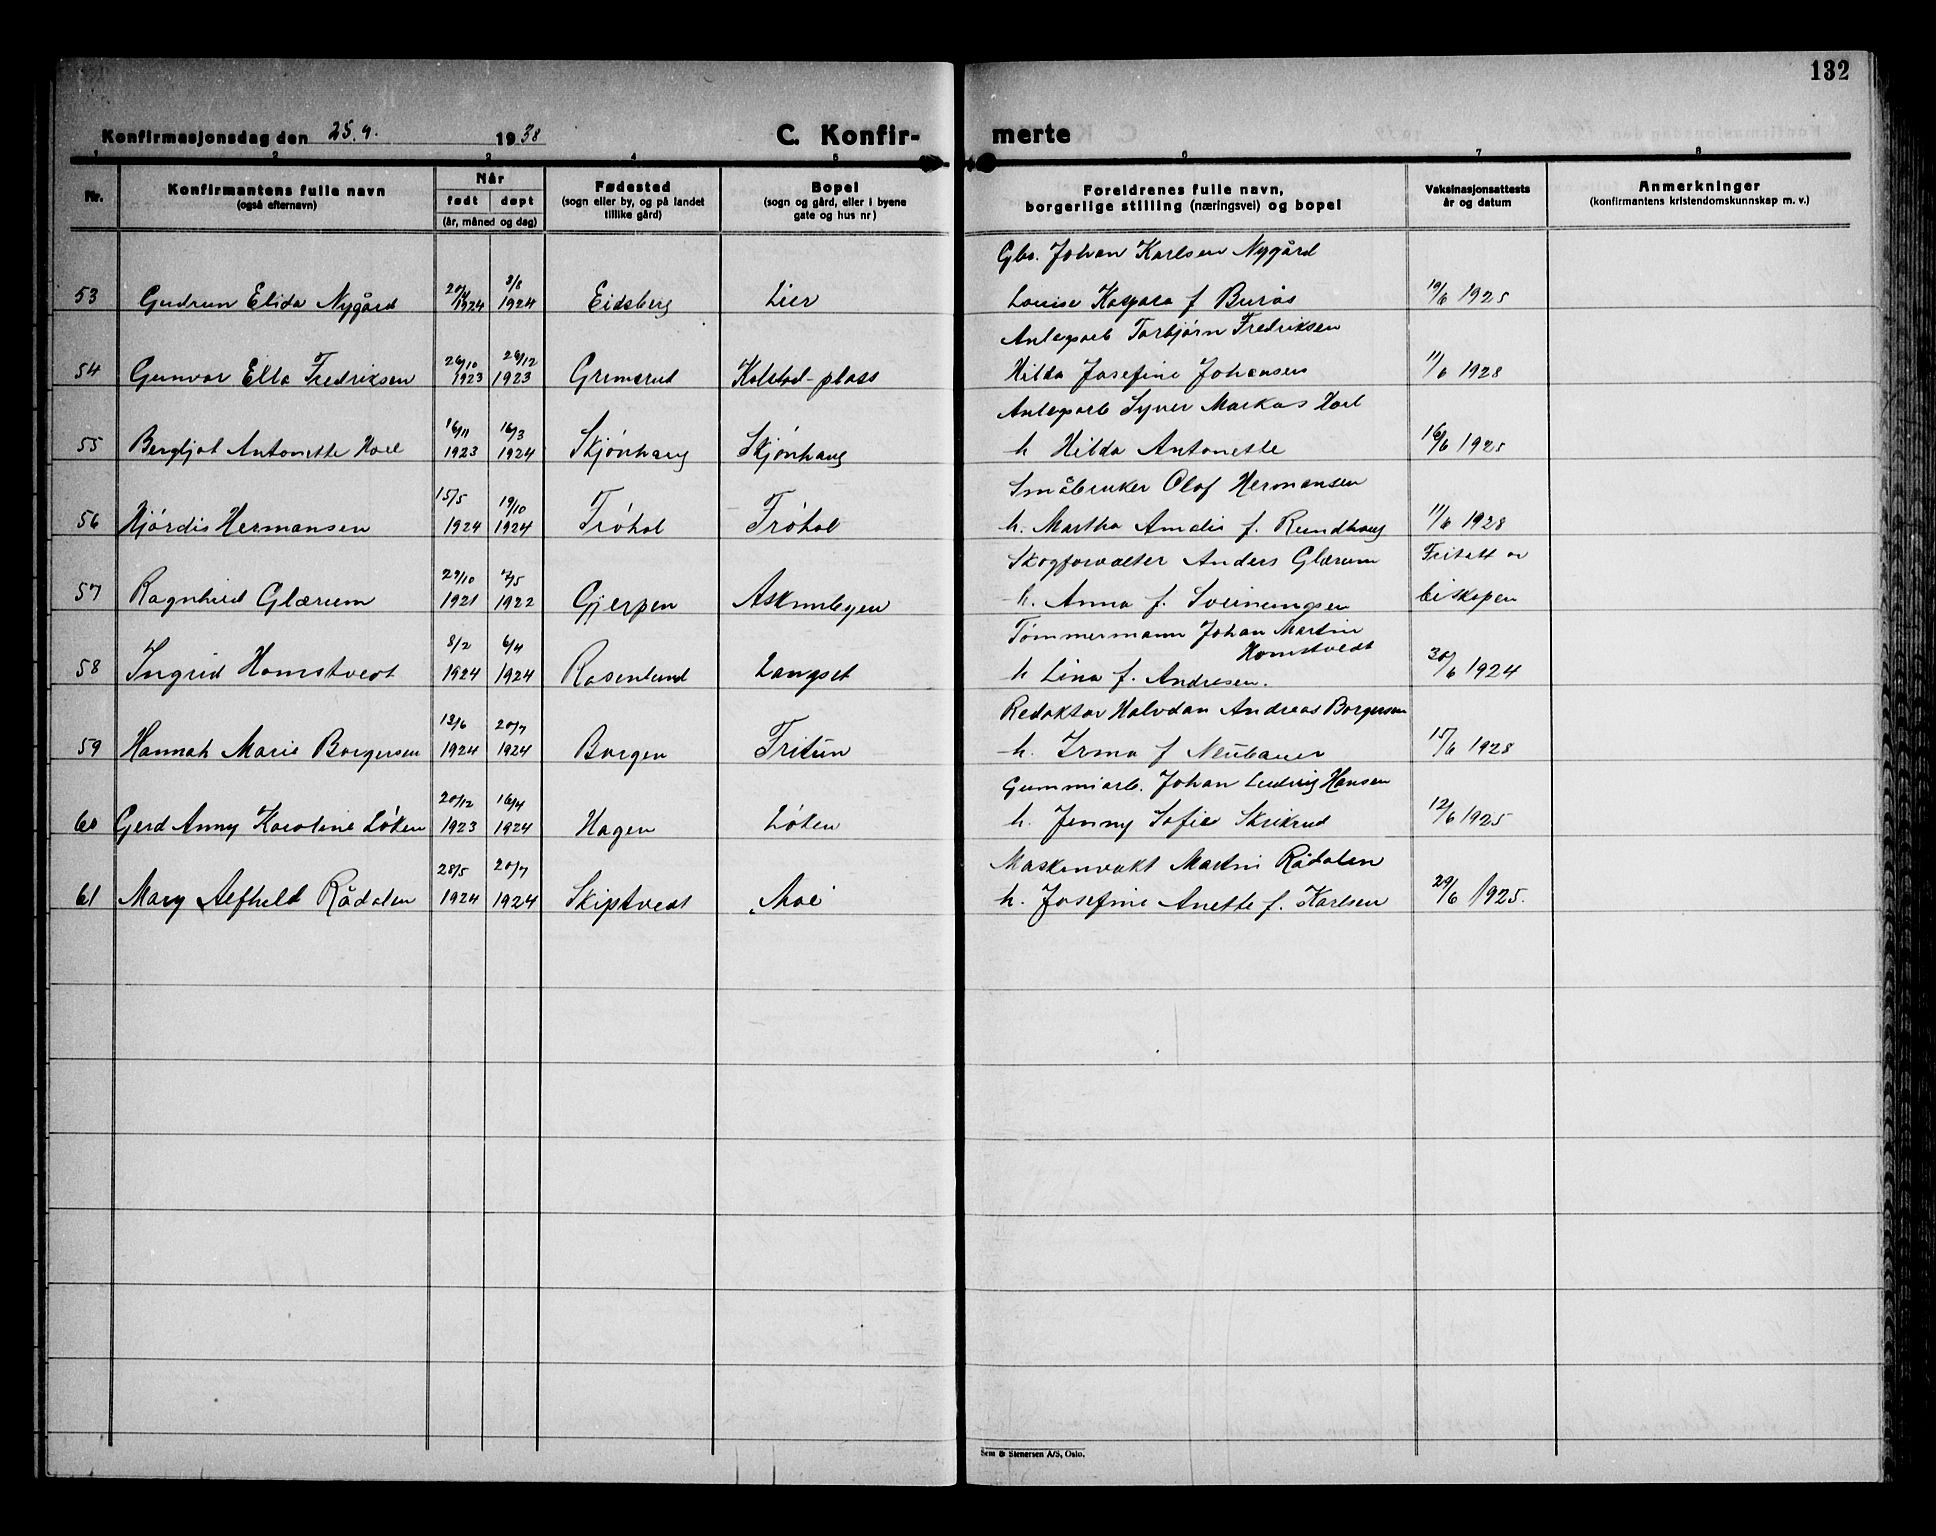 132
Konfirmasjonsdag den 25.9. 1938
C. Konfir-
merte
1 2 3 4 5 6 7 8
Nr.
Konfirmantens fulle navn
(også efternavn)
Når
født døpt
(år, måned og dag)
Fødested
(sogn eller by, og på landet
tillike gård)
Bopel
(sogn og gård, eller i byene
gate og hus nr)
Foreldrenes fulle navn,
borgerlige stilling (næringsvei) og bopel
Vaksinasjonsattests
år og datum
Anmerkninger
(konfirmantens kristendomskunnskap m. v.)
Gbr. Johan Karlsen Nygård
53 Gudrun Elida Nygård 1924 3/8 1924 Eidsberg Lier Louise Kaspara f Burås 19/6 1925
Anlegsarb Torbjørn Fredriksen
54 Gunvor Ella Fredriksen 26/10 1923 26/12 1923 Gremsrud Kolstad-plass Hilda Josefine Johansen 11/6 1928
Anlegsarb Syver Markus Hoel
55 Bergljot Antonette Hoel 16/11 1923 16/3 1924 Skjønhaug Skjønhaug h Hilda Antonette 16/6 1925
Småbruker Olaf Hermansen
56 Hjørdis Hermansen 15/5 1924 19/10 1924 Trøhol Trøhol h. Martha Amalie f. Rundhaug 11/6 1928
Skogforvalter Anders Glærum Fritatt av
57 Ragnhild Glærum 29/10 1921 7/5 1922 Gjerpen Askimbyen h. Anna f. Sveinungsen biskopen
Tømmermann Johan Martin
Homstvedt
58 Ingrid Homstvedt 8/2 1924 6/4 1924 Rosenlund Langset h Lina f. Andresen. 30/6 1924
Redaktør Halvdan Andreas Borgersen
59 Hannah Marie Borgersen 13/6 1924 20/7 1924 Borgen Fritun h. Irma f Neubauer 15/6 1928
Gummiarb. Johan Ludvig Hansen
60 Gerd Anny Karoline Løken 20/12 1923 16/4 1924 Hagen Løken h. Jenny Sofie Skrikrud 12/6 1925
Maskinvakt Martin Rådalen
61 Mary Alfhild Rådalen 28/5 1924 20/7 1924 Skiptvedt Moe h. Josefine Anette f. Karlsen 29/6 1925.
Sem & Stenersen A/S, Oslo.